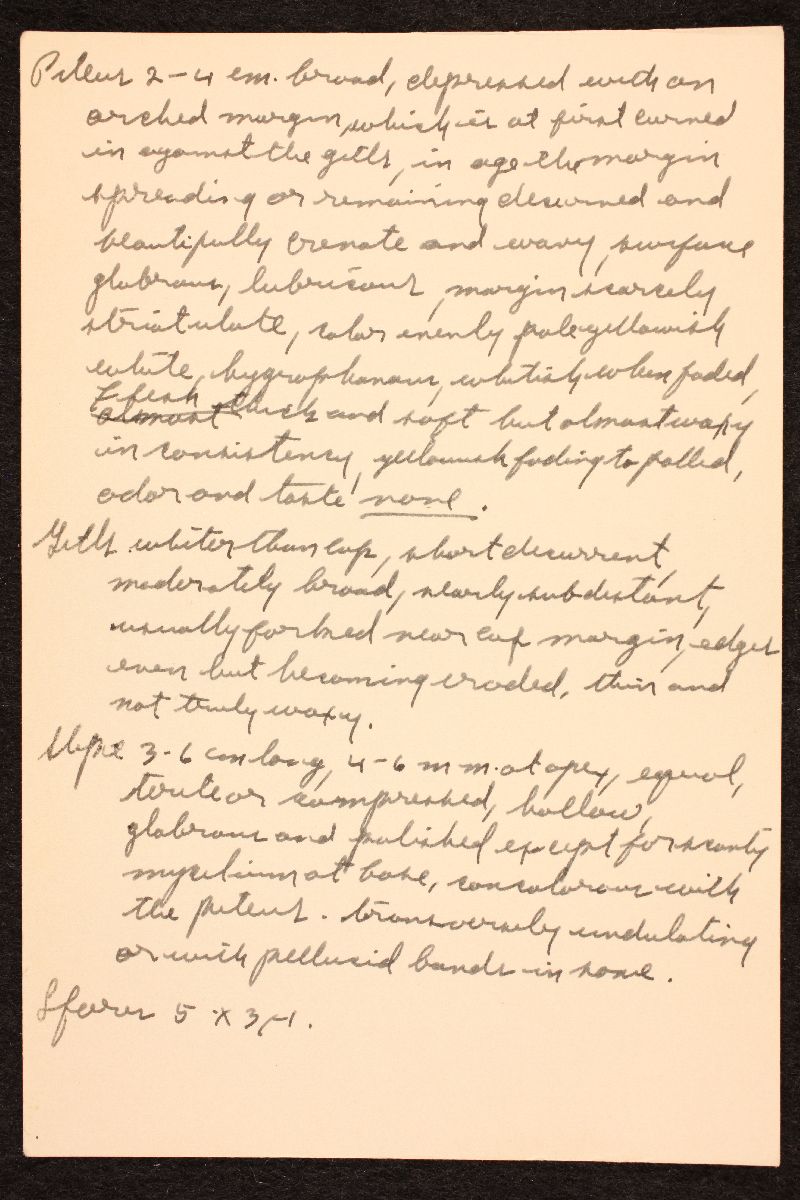 Pileus 2-4 cm. broad, depressed with an
arched margin, which is at first curved
in against the gills, in age the margin
spreading or remaining decurved and
beautifully crenate and wavy, surface
glabrous, lubricous, margin scarcely
striatulate, color evenly pale yellowish
white, hygrophanous, whitish when faded,
Flesh
almost thick and soft but almost waxy
in consistency, yellowish fading to pallid,
odor and taste none.
Gills whiter than cap, short decurrent,
moderately broad, nearly subdistant,
usually forked near cap margin, edges
even but becoming eroded, thin and
not truly waxy.
Stipe 3-6 cm long, 4-6 mm. at apex, equal,
terete or compressed, hollow,
glabrous and polished except for scanty
mycelium at base, concolorous with
the pileus. transversely undulating
or with pellucid bands in some.
Spores 5 x 3 μ.